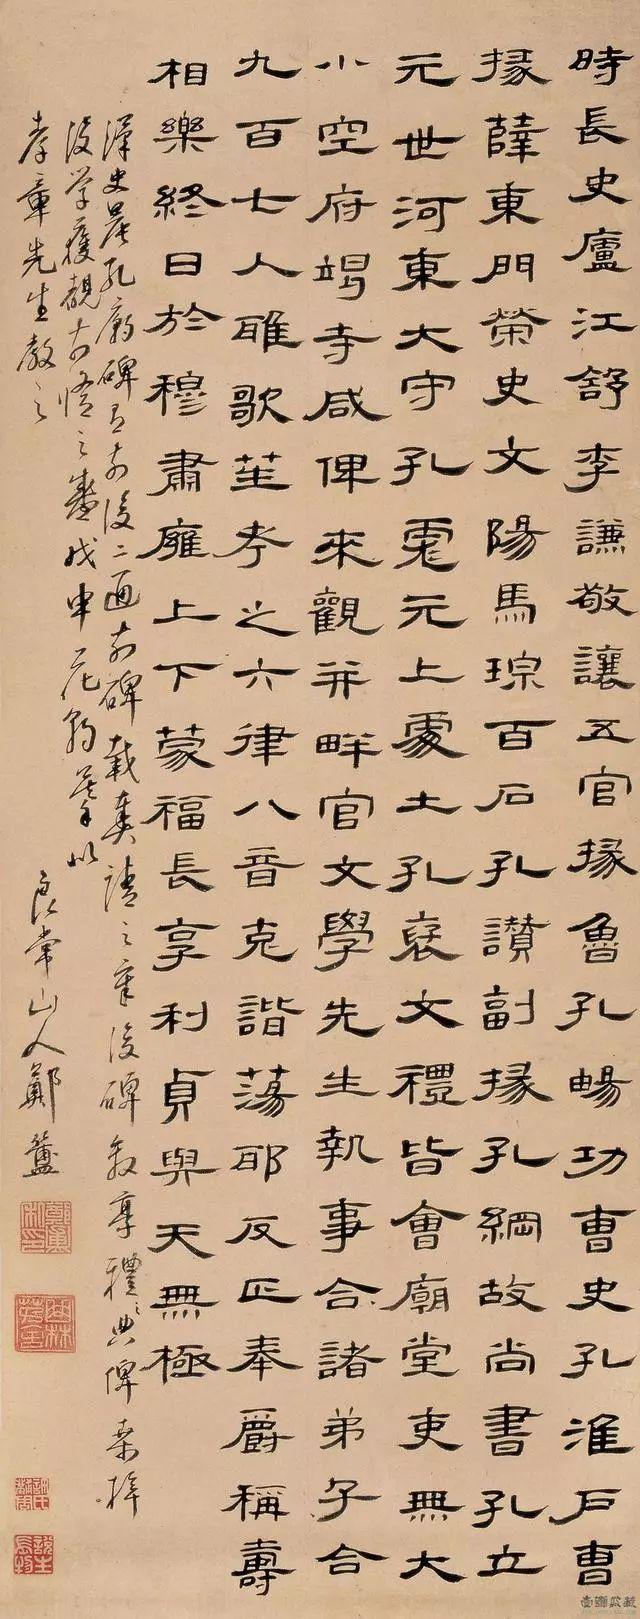 時長史廬江舒李謙敬讓五官掾魯孔暢功曹史孔淮戶曹
掾薛東門榮史文陽馬琮百石孔讃副掾孔綱故尚書孔立
元世河東大守孔彪元上處土孔褒文禮皆會廟堂吏無大
小空府竭寺咸俾來觀并畔官文學先生執事合諸弟子合
九百七人雎歌笙考之六律八音克諧蕩耶反正奉爵稱壽
相樂終日於穆肅廱上下蒙福長享利貞與天無極
漢史晨孔廟碑有前後二通前碑載奏請之章後碑敘享禮之典俾
後學獲觀 之 戊申花朝 以
孝章先生教之
良常山人鄭簠